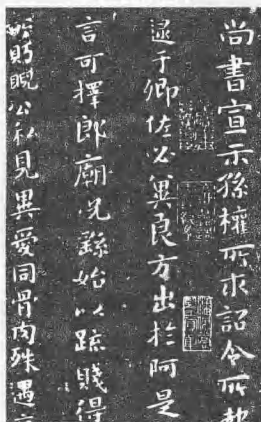 尚書宣示孫權所求詔令所報
逮于卿佐必冀良方出於阿是
言可擇郎廟況繇始以疏賤得
眄睨公私見異愛同骨肉殊遇